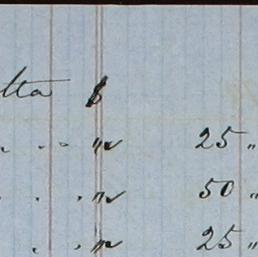 tta $
. . . " 25 "
. . . " 50 "
. . " 25 "